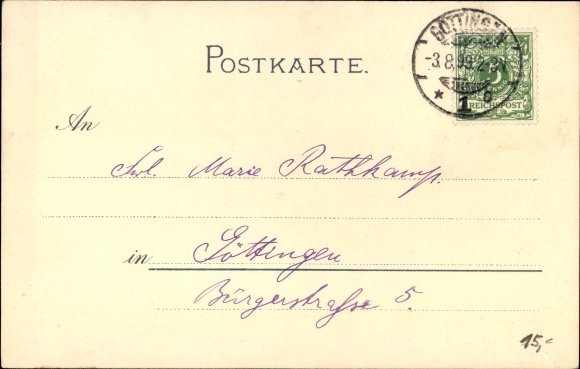 GÖTTINGEN
-3.8.99.2-3N
* 1 c
REICHSPOST
POSTKARTE.
An
Frl. Marie Rathkamp.
in Göttingen
Bürgerstraße 5.
15,-